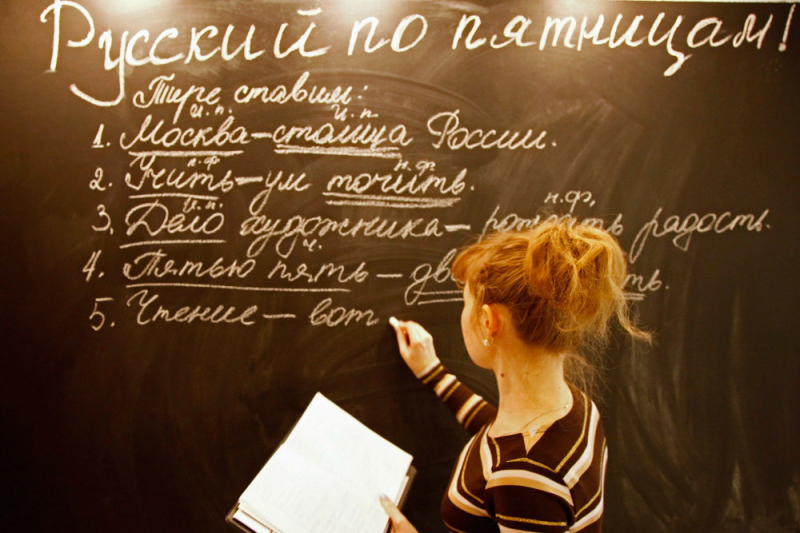 Русский по пятницам!
Тире ставим:
и.п. и.п.
1. Москва – столица России.
н.ф н.ф.
2. Учить – ум точить.
и.п. н.ф.
3. Дело художника – рождать радость.
ч.
4. Пятью пять –
5. Чтение – вот